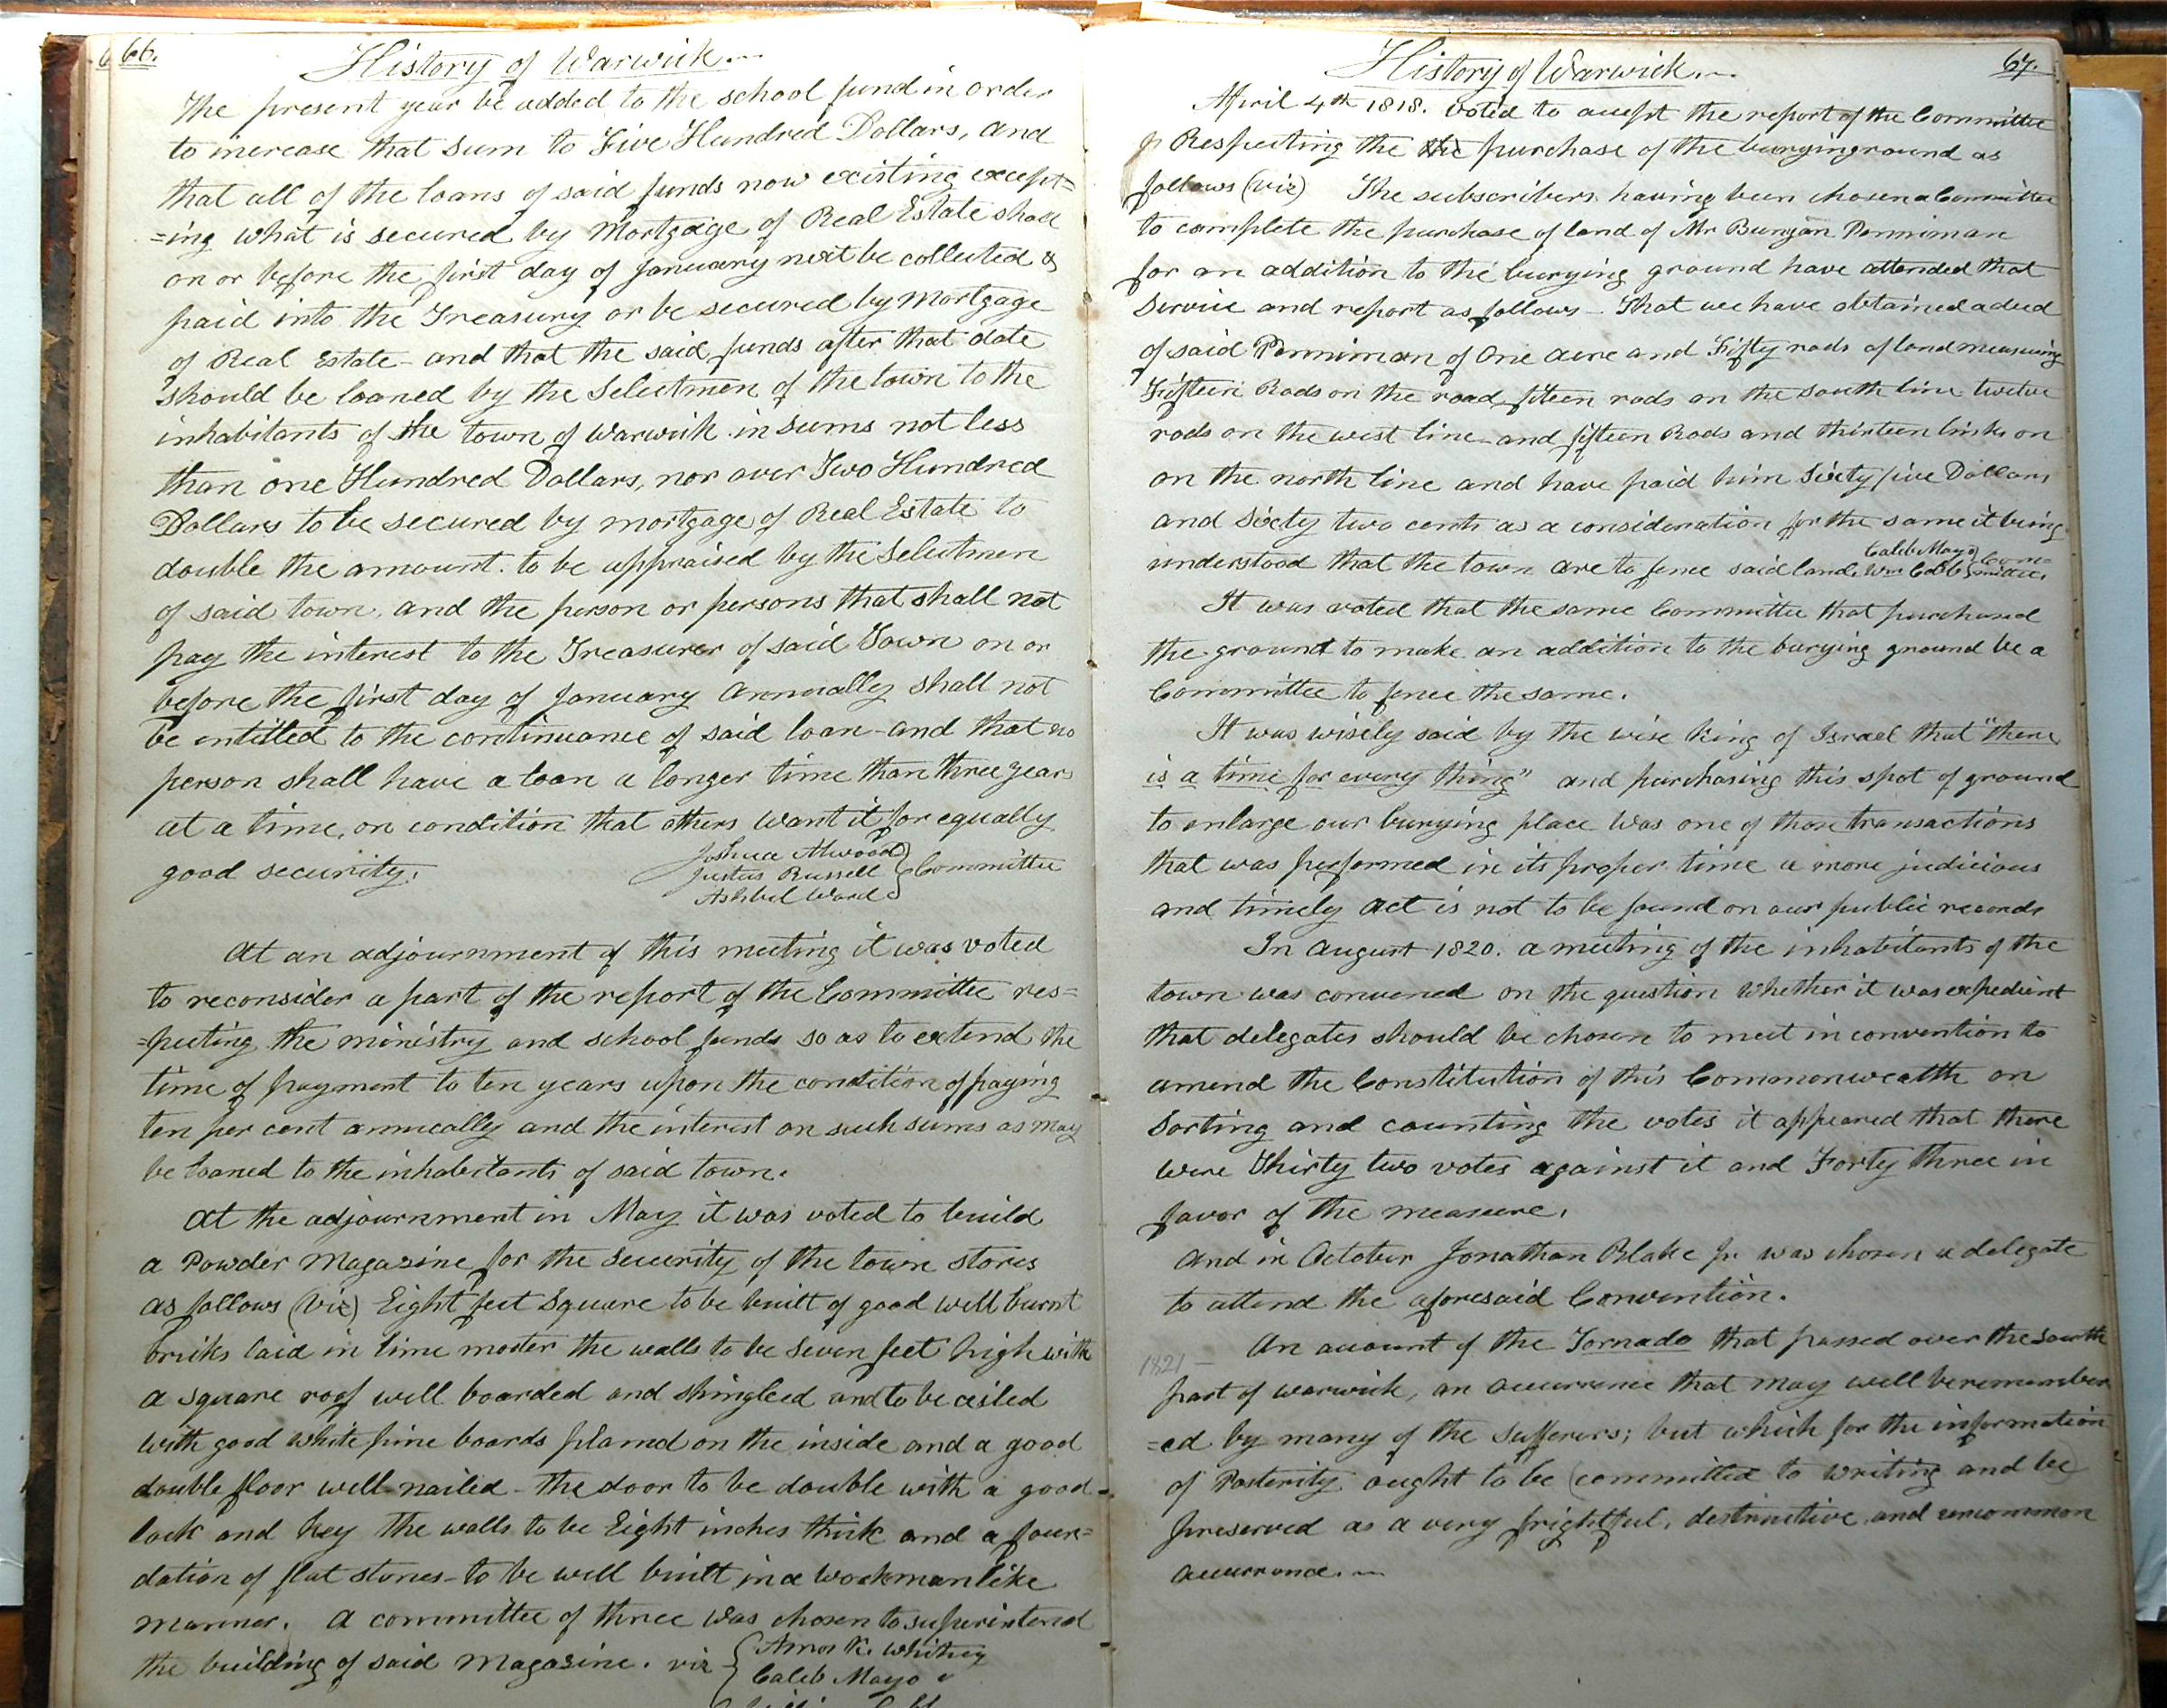 66.
History of Warwick.
The present year be added to the school fund in order
to increase that sum to Five Hundred Dollars, and
that all of the loans of said funds now existing except=
=ing what is secured by Mortgage of Real Estate shall
on or before the first day of January next be collected &
paid into the Treasury or be secured by Mortgage
of Real Estate - and that the said funds after that date
should be loaned by the Selectmen of the town to the
inhabitants of the town of Warwick in sums not less
than one Hundred Dollars, nor over Two Hundred
Dollars to be secured by mortgage of Real Estate to
double the amount. to be appraised by the Selectmen
of said town, and the person or persons that shall not
pay the interest to the Treasurer of said Town on or
before the first day of January Annually shall not
be intitled to the continuance of said loan - and that no
person shall have a loan a longer time than three years
at a time, on condition that others want it for equally
good security.
Joshua Atwood
Justus Russell } Committee
Ashbel Ward
At an adjournment of this meeting it was voted
to reconsider a part of the report of the Committee res=
=pecting the ministry and school funds so as to extend the
time of payment to ten years upon the condition of paying
ten per cent annually and the interest on such sums as may
be loaned to the inhabitants of said town.
At the adjournment in May it was voted to build
a Powder Magazine for the security of the town stores
as follows (viz) Eight feet Square to be built of good well burnt
bricks laid in lime morter the walls to be Seven feet high with
a square roof well boarded and shingled and to be ceiled
with good white pine boards planed on the inside and a good
double floor well nailed - the door to be double with a good
lock and key the walls to be Eight inches thick and a foun=
dation of flat stones - to be well built in a workmanlike
manner. A committee of three was chosen to superintend
the building of said Magazine. viz { Amos K. Whitney
Caleb Mayo
67.
History of Warwick.
April 4th 1818. voted to accept the report of the Committee
Respecting the the purchase of the buryinground as
follows (viz) The subscribers having been chosen a Committee
to complete the purchase of land of Mr Bunyan Penniman
for an addition to the burying ground have attended that
Service and report as follows - That we have obtained a deed
of said Penniman of One acre and Fifty rods of land measuring
Fifteen Rods on the road, fiteen rods on the south line twelve
rods on the west line - and fifteen Rods and thirteen links on
on the north line and have paid him Sixty five Dollars
and Sixty two cents as a consideration for the same it being
understood that the town are to fence said land. Caleb Mayo Wm Cobb } Com=mittee.
It was voted that the same Committee that purchased
the ground to make an addition to the burying ground be a
Committee to fence the same.
It was wisely said by the wise King of Israel that "there
is a time for every thing" and purchasing this spot of ground
to enlarge our burying place was one of those transactions
that was performed in its proper time a more judicious
and timely act is not to be found on our public records
In August 1820. a meeting of the inhabitants of the
town was convened on the question whether it was expedient
that delegates should be chosen to meet in convention to
amend the Constitution of this Commonwealth on
Sorting and counting the votes it appeared that there
were Thirty two votes against it and Forty three in
favor of the measure.
And in October Jonathan Blake Jr was chosen a delegate
to attend the aforesaid Convention.
An account of the Tornado that passed over the south
1821 -
part of Warwick, an occurrence that may well be remember
=ed by many of the Sufferers; but which for the information
of Posterity ought to be (committed to writing and be)
preserved as a very frightful, destructive and uncommon
occurrence.